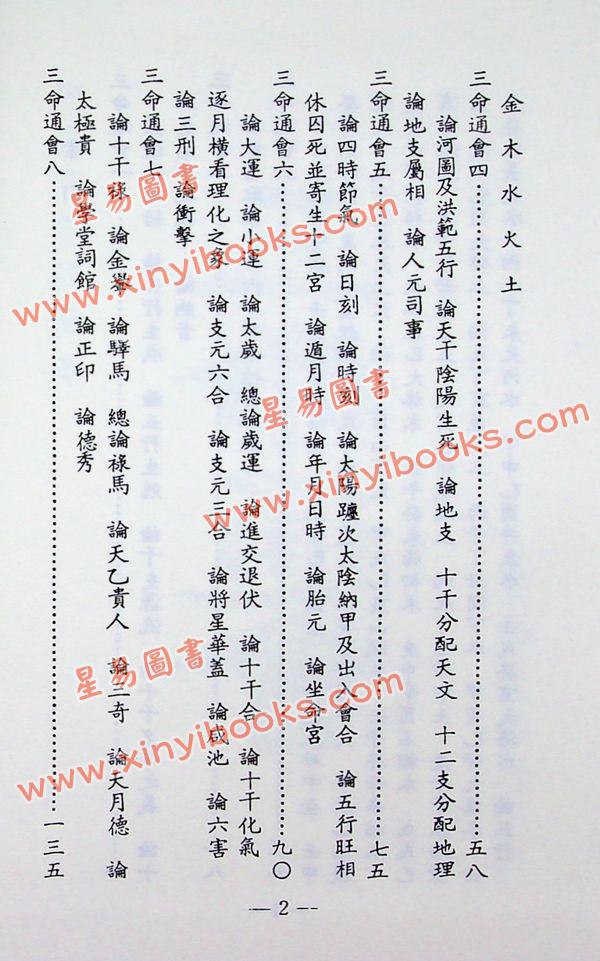 金木水火土
三命通會四……………………五八
論河圖及洪範五行 論天干陰陽生死 論地支 十干分配天文 十二支分配地理
論地支屬相 論人元司事
三命通會五……………………七五
論四時節氣 論日刻 論時刻 論太陽躔次太陰納甲及出入會合 論五行旺相
休囚死並寄生十二宮 論遁月時 論年月日時 論胎元 論坐命宮
三命通會六……………………九〇
論大運 論小運 論太歲 總論歲運 論進交退伏 論十干合 論十干化氣
逐月橫看理化之象 論支元六合 論支元三合 論將星華蓋 論咸池 論六害
論三刑 論衝擊
三命通會七
論十干祿 論金轝 論驛馬 總論祿馬 論天乙貴人 論三奇 論天月德 論
太極貴 論學堂詞館 論正印 論德秀
三命通會八……………………一三五
— 2 —
星易圖書
www.xinyibooks.com
星易圖書
www.xinyibooks.com
星易圖書
www.xinyibooks.com